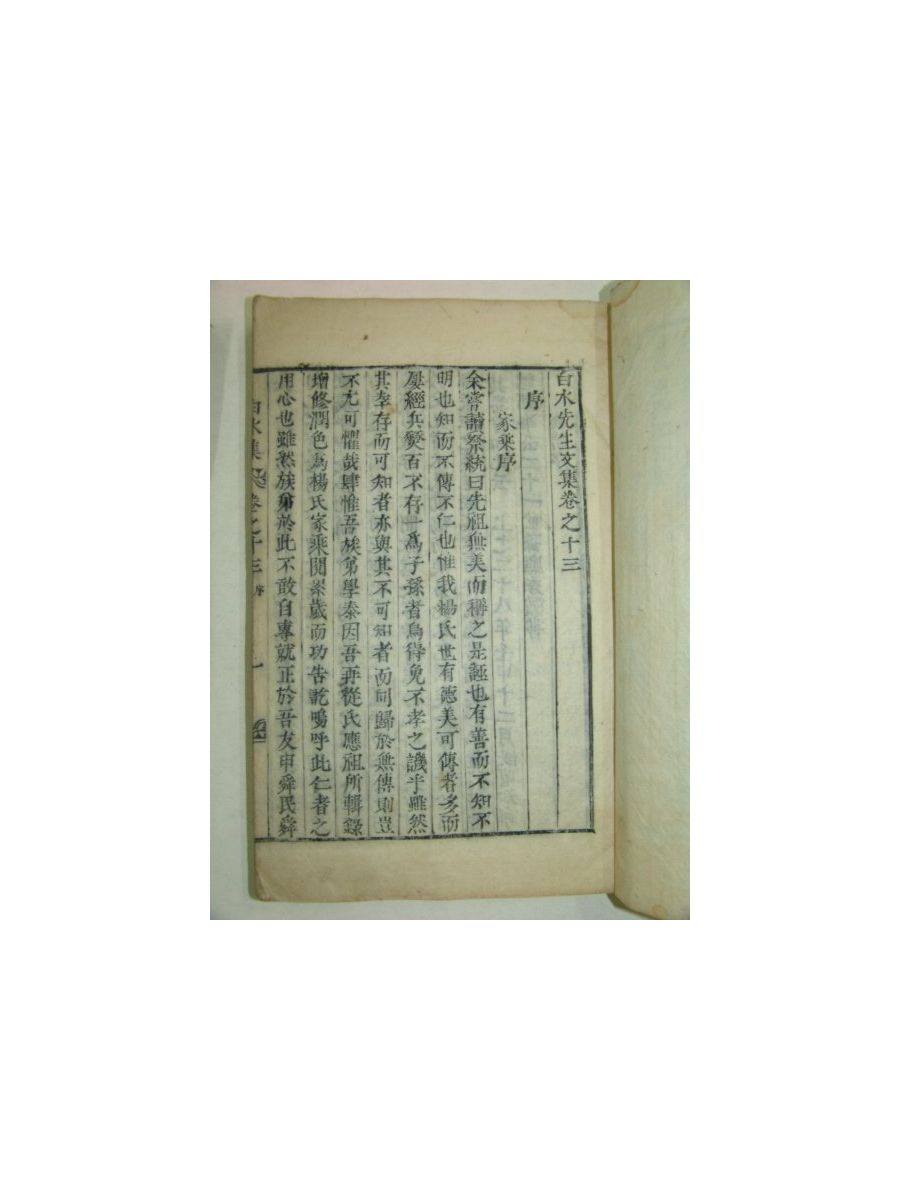 白水先生文集卷之十三
序
家乘序
余嘗讀祭統曰先祖無美而稱之是誣也有善而不知不
明也知而不傳不仁也惟我楊氏世有德美可傳者多而
屢經兵燹百不存一爲子孫者烏得免不孝之譏乎雖然
其幸存而可知者亦與其不可知者而同歸於無傳則豈
不尤可懼哉肆惟吾族弟學泰因吾再從氏應祖所輯錄
增修潤色爲楊氏家乘閱累歲而功告訖嗚呼此仁者之
用心也雖然族弟於此不敢自專就正於吾友申舜民舜
白水集 卷之十三 序